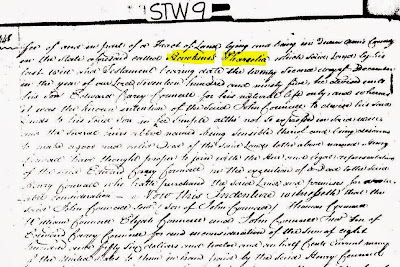 STW9
for of and in part of a Tract of Land lying and being in Queen Anns County
in the State aforesaid called Hawkins Pharsalia which said Land by his
last will and Testament bearing date the twenty Second day of December
in the year of our Lord Seventeen hundred and ninety five he devised unto
his Son Edward Carey for his natural life only and whereas
it was the known intention of the said John to devise his said
Lands to his said Son in fee Simple altho not so expressed in said will
and the several heirs above named being Sensible thereof and being desirous
to make a good and valid Deed of the said Lands to the above named Henry
have thought proper to join with the heir and legal representatives
of the said Edward Carey in the execution of a Deed to the said
Henry who hath purchased the said Lands and premises for a
consideration Now this Indenture witnesseth that the
said John (Son of John) Thomas
William Elijah and John heir of
Edward Carey for and in consideration of the sum of eight
hundred and fifty Six dollars and twelve and an half Cents Current money
of the United States to them in hand paid by the said Henry